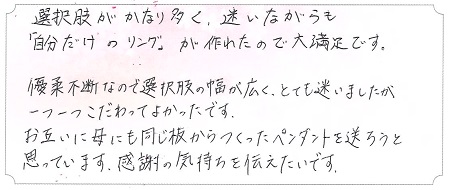 選択肢がかなり多く、迷いながらも
「自分だけのリング」が作れたので大満足です。
優柔不断なので選択肢の幅が広く、とても迷いましたが
一つ一つこだわってよかったです。
お互いに母にも同じ板からつくったペンダントを送ろうと
思っています。感謝の気持ちを伝えたいです。